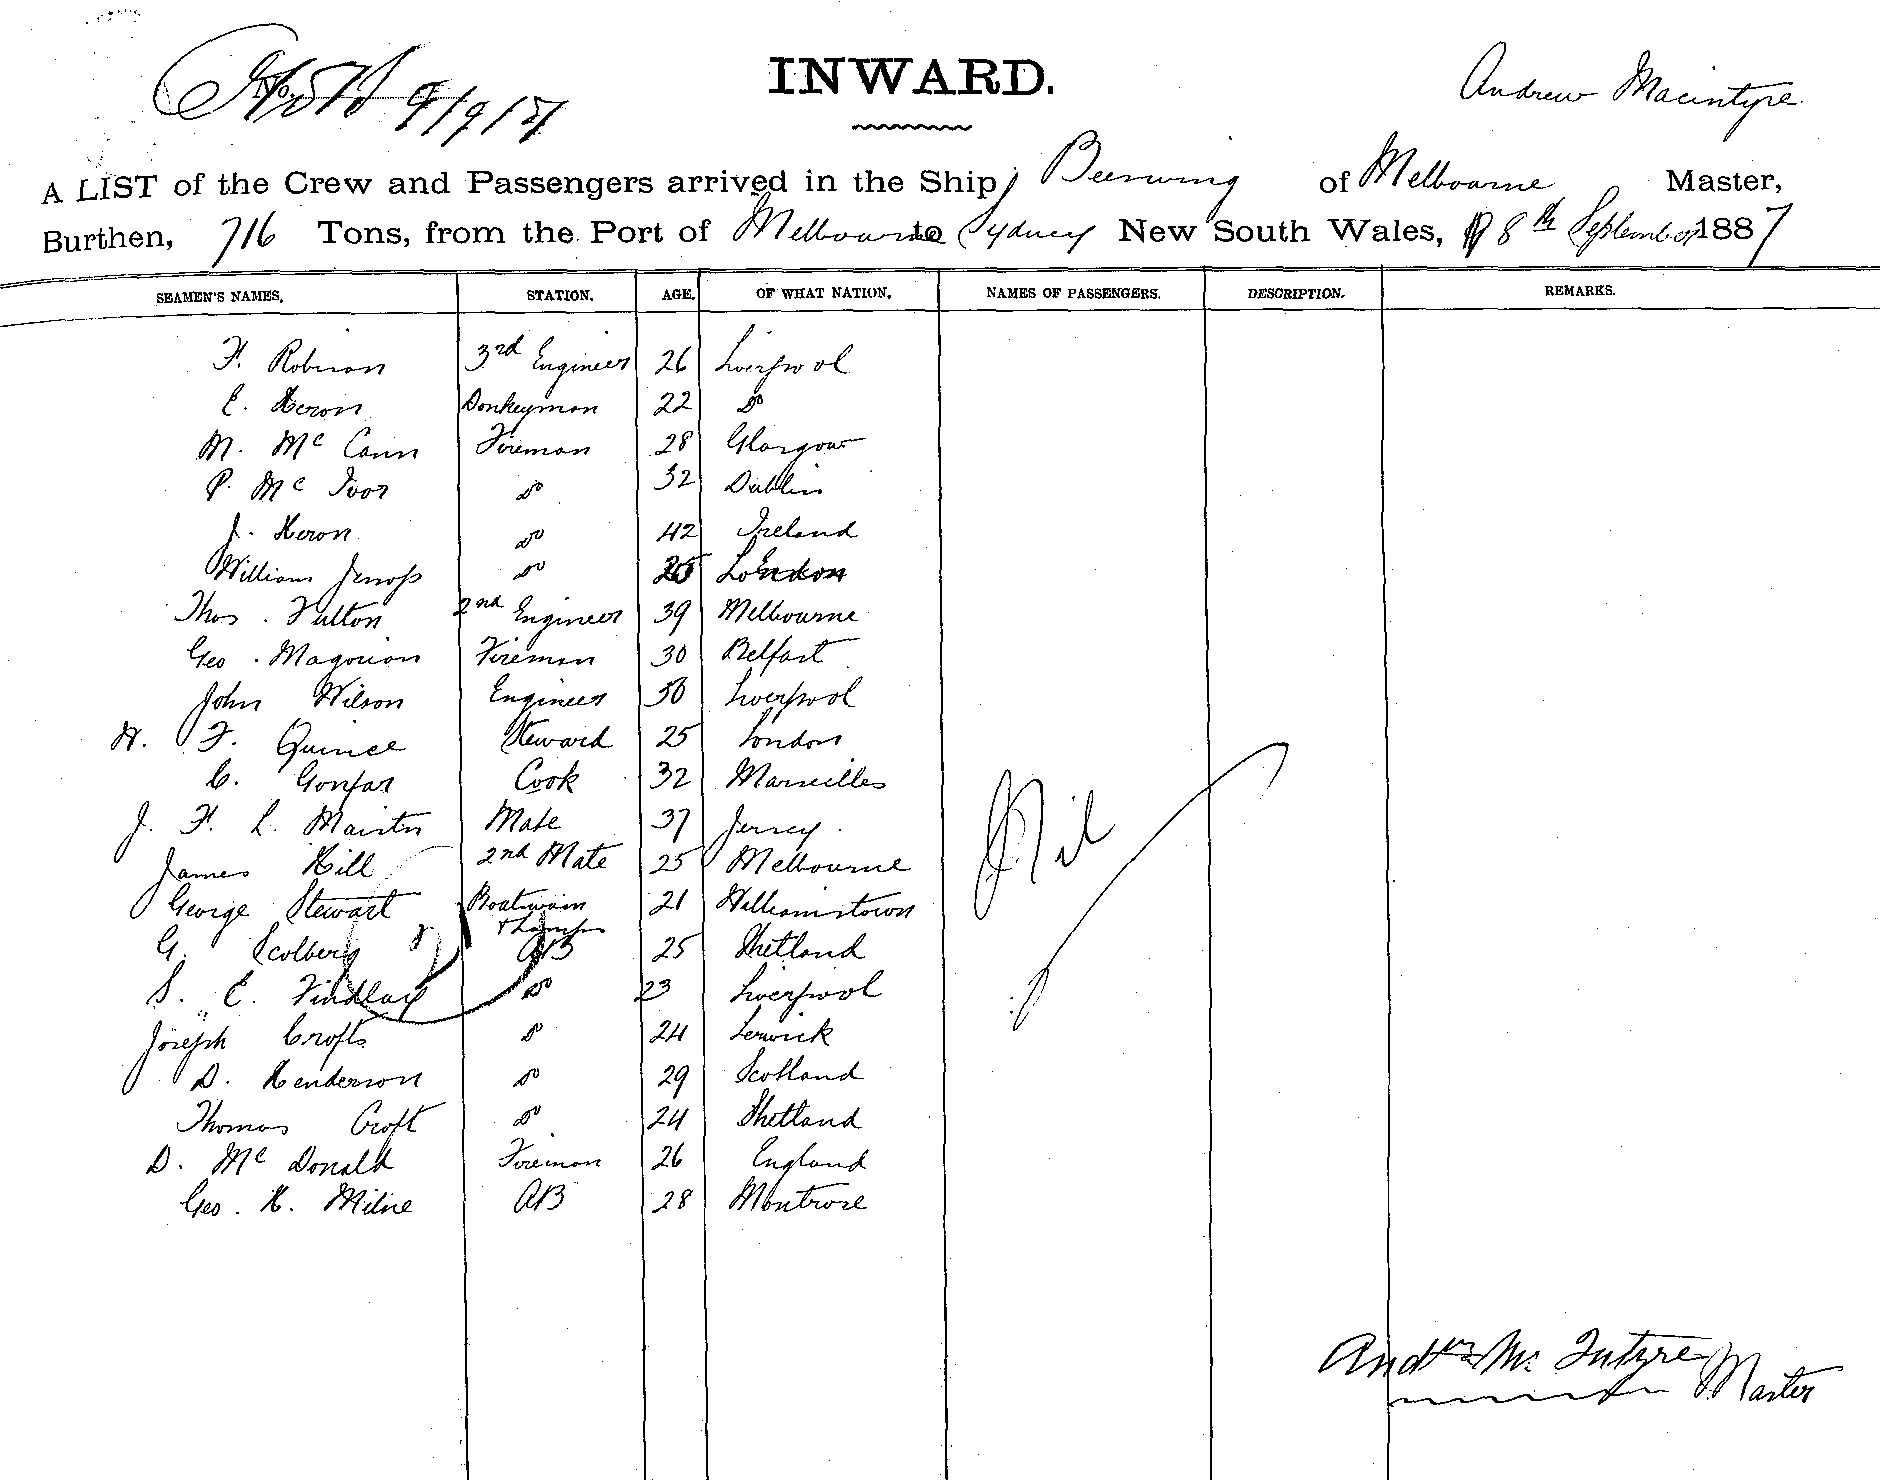 9/9/87
INWARD.
Andrew Macintyre
A LIST of the Crew and Passengers arrived in the Ship, of Melbourne Master,
Burthen, 716 Tons, from the Port of Melbourne to Sydney New South Wales, 8th September 1887
SEAMEN'S NAMES. STATION. AGE. OF WHAT NATION. NAMES OF PASSENGERS. DESCRIPTION. REMARKS.
F. Robinson 3rd Engineer 26 Liverpool
E. Heron Donkeyman 22 Do
M. McCann Fireman 28 Glasgow
P. McIvor Do 32 Dublin
J. Heron Do 42 Ireland
William Do London
Thos. Fulton 2nd Engineer 39 Melbourne
Geo. Magouran Fireman 30 Belfast
John Wilson Engineer 50 Liverpool
H. F. Quince Steward 25 London
C. Cook 32 Marseilles
J. F. L. Mate 37 Jersey
James Hill 2nd Mate 25 Melbourne
George Stewart Boatswain & Lamps 21 Williamstown
G. Scolberg AB 25 Shetland
S. E. Findlay Do 23 Liverpool
Joseph Crofts Do 24 Lerwick
D. Henderson Do 29 Scotland
Thomas Croft Do 24 Shetland
D. McDonald Fireman 26 England
Geo. H. Milne AB 28 Montrose
Nil
Andrew McIntyre
Master